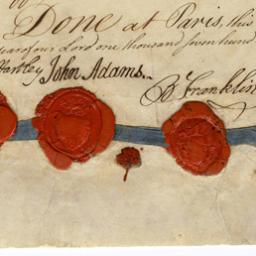 Done at Paris, this
year of our Lord one thousand seven hund
Hartley John Adams.. B Franklin